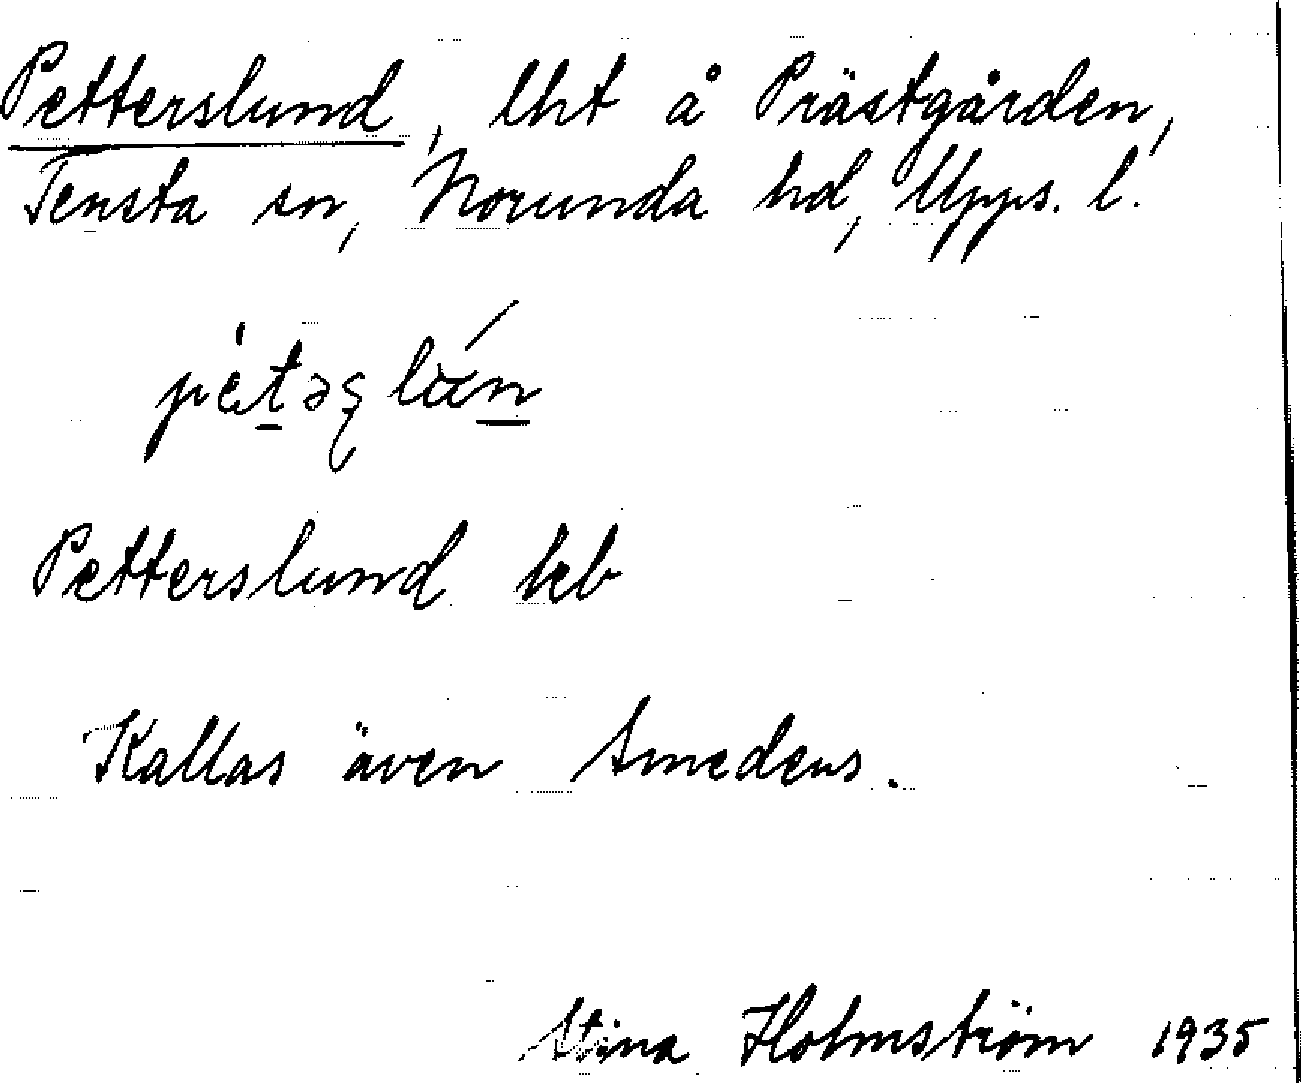 Petterslund, lht å Prästgården,
Tensta sn, Norunda hd, Upps. l.
Petterslund keb
Kallas även Smedens.
Stina Holmström 1935